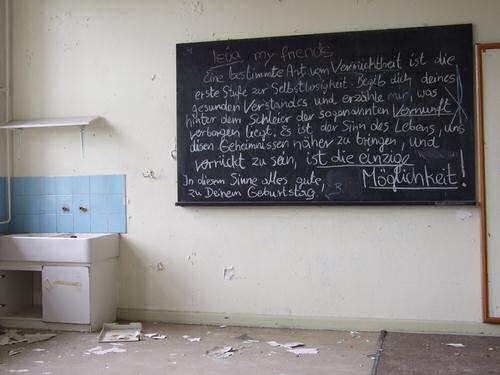 my friends
Eine bestimmte Art von Verrücktheit ist die
erste Stufe zur Selbstlosigkeit. Begib dich deines
gesunden Verstandes und erzähle mir, was
hinter dem Schleier der sogenannten Vernunft
verborgen liegt. Es ist der Sinn des Lebens, uns
disen Geheimnissen näher zu bringen, und
verrückt zu sein, ist die einzige
Möglichkeit!
In diesem Sinne alles gute
zu Deinem Geburtstag!